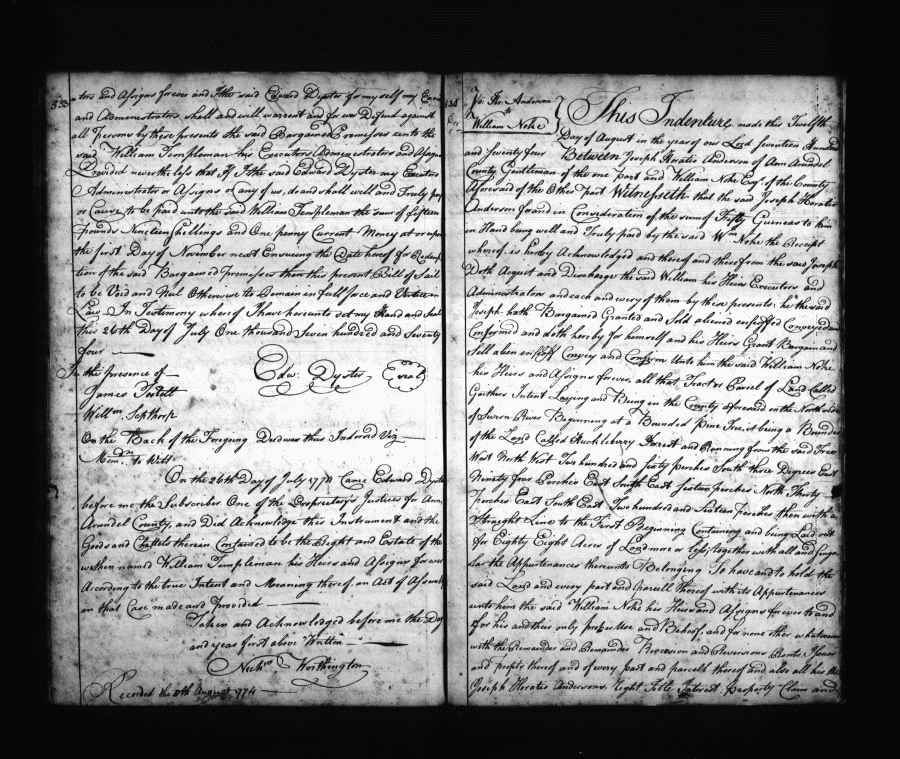 333
tors and Assigns forever and I the said Edward Dyster for my self my
and Administrators shall and will warrent and for ever Defend against
all Persons by these presents the said Bargained Premisses unto the
said William Templeman his Executors Administrators and Assigns
Provided nevertheless that If I the said Edward Dyster my Executors
Administrators or Assigns or any of us, do and shall well and Truly pay
or Cause to be paid unto the said William Templeman the sum of fifteen
pounds Nineteen shillings and One penny Current Money at or upon
the first Day of November next Ensueing the Date hereof for Redemp
tion of the said Bargained Premisses then this present Bill of Sail
to be Void and Nul Otherwise to Remain in full force and Virtue in
Law In Testimony where of I have hereunto set my Hand and Seal
this 26th Day of July One thousand seven hundred and seventy
four
In the presence of
Edw. Dyster Seal
James
Willm
On the Back of the Foregoing Deed was thus Indorsed Viz
On the 26th Day of July 1774 Came Edward Dyster
before me the Subscriber One of the Proprietary's Justices for Ann
Arundel County, and Did Acknowledge this Instrument and the
Goods and Chattels therein Contained to be the Right and Estate of the
within named William Templeman his Heirs and Assigns forever
According to the true Intent and Meaning thereof, an Act of Assembly
in that Case made and Provided
Taken and Acknowledged before me the Day
and year first above Written
Nichs Worthington
Recorded the August 1774
334
Jo. Ho. Anderson
to
William Noke
This Indenture made this Twelfth
Day of August in the year of our Lord Seventeen Hundred
and seventy four Between Joseph Horatio Anderson of Ann Arundel
County Gentleman of the one part and William Noke Esqr of the County
aforesaid of the Other Part Witnesseth that the said Joseph Horatio
Anderson for and in Consideration of the sum of Fifty Guineas to him
in Hand being well and Truly paid by the said Wm Noke the Receipt
whereof is hereby Acknowledged and thereof and therefrom the said Joseph
Doth Acquit and Discharge the said William his Heirs Executors and
Administrators and each and every of them by these presents; he the said
Joseph hath Bargained Granted and Sold aliened enfeoffed Conveyed and
Confirmed and doth hereby for himself and his Heirs Grant Bargain and
Sell alien enfeoff Convey and Confirm Unto him the said William Noke
his Heirs and Assigns forever, all that Tract or Parcel of Land Called
Gaithers Intent Laying and Being in the County aforesaid on the North side
of Severn River Beginning at a Bounded Pine Tree it being a Bounder
of the Land Called Huckleberry Forrest and Running from the said Tree
West North West Two hundred and sixty perches South three Degrees East
Ninety four Perches East South East sixteen perches North Thirty
Perches East South East Two hundred and Sixteen perches then with a
Straight Line to the First Beginning Containing and being Laid out
for Eighty Eight Acres of Land more or less; together with all and Singu
lar the Appurtenances thereunto Belonging To have and to hold the
said Land and every part and parcell thereof with its Appurtenances
unto him the said William Noke his Heirs and Assigns forever to and
for his and their only proper Use and Behoof, and for none other whatsoever
with the Remainder and Remainders Reversion and Reversions Rents Issues
and profits thereof and of every part and parcell thereof and also all his the
Joseph Horatio Andersons Right Title Interest Property Claim and